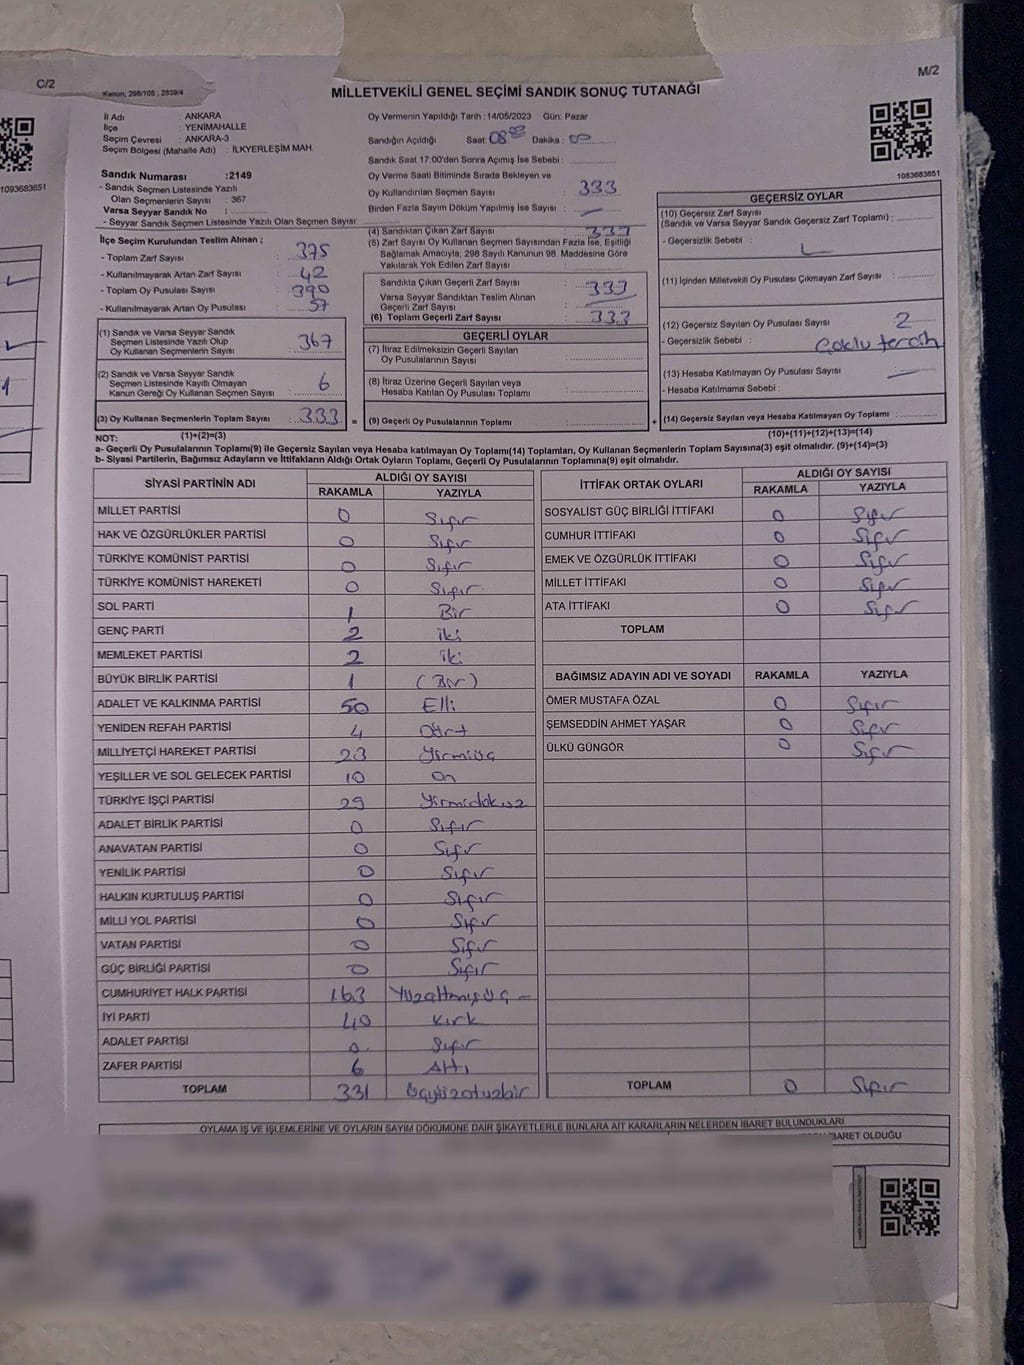 C/2
M/2
Kanun, 298/105 , 2839/4
MİLLETVEKİLİ GENEL SEÇİMİ SANDIK SONUÇ TUTANAĞI
1093683651
1083683651
İl Adı : ANKARA
İlçe : YENİMAHALLE
Seçim Çevresi : ANKARA-3
Seçim Bölgesi (Mahalle Adı) : İLKYERLEŞİM MAH.
Oy Vermenin Yapıldığı Tarih :14/05/2023 Gün: Pazar
Sandığın Açıldığı Saat: 08 Dakika :
Sandık Saat 17:00'den Sonra Açmış İse Sebebi :
Oy Verme Saati Bitiminde Sırada Bekleyen ve
Oy Kullandırılan Seçmen Sayısı : 333
Birden Fazla Sayım Döküm Yapılmış İse Sayısı : —
Sandık Numarası :2149
- Sandık Seçmen Listesinde Yazılı
Olan Seçmenlerin Sayısı : 367
Varsa Seyyar Sandık No :
- Seyyar Sandık Seçmen Listesinde Yazılı Olan Seçmen Sayısı:
İlçe Seçim Kurulundan Teslim Alınan ;
- Toplam Zarf Sayısı : 375
- Kullanılmayarak Artan Zarf Sayısı : 42
- Toplam Oy Pusulası Sayısı : 390
- Kullanılmayarak Artan Oy Pusulası : 57
(1) Sandık ve Varsa Seyyar Sandık
Seçmen Listesinde Yazılı Olup
Oy Kullanan Seçmenlerin Sayısı : 367
(2) Sandık ve Varsa Seyyar Sandık
Seçmen Listesinde Kayıtlı Olmayan
Kanun Gereği Oy Kullanan Seçmen Sayısı : 6
(3) Oy Kullanan Seçmenlerin Toplam Sayısı : 333 =
(1)+(2)=(3)
(4) Sandıktan Çıkan Zarf Sayısı : 333
(5) Zarf Sayısı Oy Kullanan Seçmen Sayısından Fazla İse, Eşitliği
Sağlamak Amacıyla; 298 Sayılı Kanunun 98. Maddesine Göre
Yakılarak Yok Edilen Zarf Sayısı :
Sandıkta Çıkan Geçerli Zarf Sayısı : 333
Varsa Seyyar Sandıktan Teslim Alınan
Geçerli Zarf Sayısı : —
(6) Toplam Geçerli Zarf Sayısı : 333
GEÇERLİ OYLAR
(7) İtiraz Edilmeksizin Geçerli Sayılan
Oy Pusulalarının Sayısı :
(8) İtiraz Üzerine Geçerli Sayılan veya
Hesaba Katılan Oy Pusulası Toplamı :
(9) Geçerli Oy Pusulalarının Toplamı : +
GEÇERSİZ OYLAR
(10) Geçersiz Zarf Sayısı
(Sandık ve Varsa Seyyar Sandık Geçersiz Zarf Toplamı) :
- Geçersizlik Sebebi :
(11) İçinden Milletvekili Oy Pusulası Çıkmayan Zarf Sayısı :
(12) Geçersiz Sayılan Oy Pusulası Sayısı : 2
- Geçersizlik Sebebi : Çoklu tercih
(13) Hesaba Katılmayan Oy Pusulası Sayısı : —
- Hesaba Katılmama Sebebi :
(14) Geçersiz Sayılan veya Hesaba Katılmayan Oy Toplamı :
(10)+(11)+(12)+(13)=(14)
NOT:
a- Geçerli Oy Pusulalarının Toplamı(9) ile Geçersiz Sayılan veya Hesaba katılmayan Oy Toplamı(14) Toplamları, Oy Kullanan Seçmenlerin Toplam Sayısına(3) eşit olmalıdır. (9)+(14)=(3)
b- Siyasi Partilerin, Bağımsız Adayların ve İttifakların Aldığı Ortak Oyların Toplamı, Geçerli Oy Pusulalarının Toplamına(9) eşit olmalıdır.
SİYASİ PARTİNİN ADI ALDIĞI OY SAYISI
RAKAMLA YAZIYLA
MİLLET PARTİSİ 0 Sıfır
HAK VE ÖZGÜRLÜKLER PARTİSİ 0 Sıfır
TÜRKİYE KOMÜNİST PARTİSİ 0 Sıfır
TÜRKİYE KOMÜNİST HAREKETİ 0 Sıfır
SOL PARTİ 1 Bir
GENÇ PARTİ 2 iki
MEMLEKET PARTİSİ 2 iki
BÜYÜK BİRLİK PARTİSİ 1 (Bir)
ADALET VE KALKINMA PARTİSİ 50 Elli
YENİDEN REFAH PARTİSİ 4 Dört
MİLLİYETÇİ HAREKET PARTİSİ 23 Yirmiüç
YEŞİLLER VE SOL GELECEK PARTİSİ 10 On
TÜRKİYE İŞÇİ PARTİSİ 29 Yirmidokuz
ADALET BİRLİK PARTİSİ 0 Sıfır
ANAVATAN PARTİSİ 0 Sıfır
YENİLİK PARTİSİ 0 Sıfır
HALKIN KURTULUŞ PARTİSİ 0 Sıfır
MİLLİ YOL PARTİSİ 0 Sıfır
VATAN PARTİSİ 0 Sıfır
GÜÇ BİRLİĞİ PARTİSİ 0 Sıfır
CUMHURİYET HALK PARTİSİ 163 Yüzaltmışüç —
İYİ PARTİ 40 Kırk
ADALET PARTİSİ 0 Sıfır
ZAFER PARTİSİ 6 Altı
TOPLAM 331 üçyüzotuzbir
İTTİFAK ORTAK OYLARI ALDIĞI OY SAYISI
RAKAMLA YAZIYLA
SOSYALİST GÜÇ BİRLİĞİ İTTİFAKI 0 Sıfır
CUMHUR İTTİFAKI 0 Sıfır
EMEK VE ÖZGÜRLÜK İTTİFAKI 0 Sıfır
MİLLET İTTİFAKI 0 Sıfır
ATA İTTİFAKI 0 Sıfır
TOPLAM
BAĞIMSIZ ADAYIN ADI VE SOYADI RAKAMLA YAZIYLA
ÖMER MUSTAFA ÖZAL 0 Sıfır
ŞEMSEDDİN AHMET YAŞAR 0 Sıfır
ÜLKÜ GÜNGÖR 0 Sıfır
TOPLAM 0 Sıfır
OYLAMA İŞ VE İŞLEMLERİNE VE OYLARIN SAYIM DÖKÜMÜNE DAİR ŞİKAYETLERLE BUNLARA AİT KARARLARIN NELERDEN İBARET BULUNDUKLARI
İBARET OLDUĞU